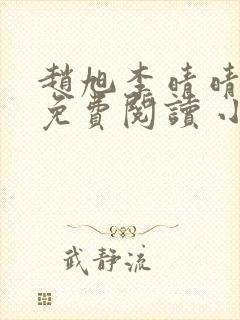 趙旭李晴晴
免費閱讀小
武靜流